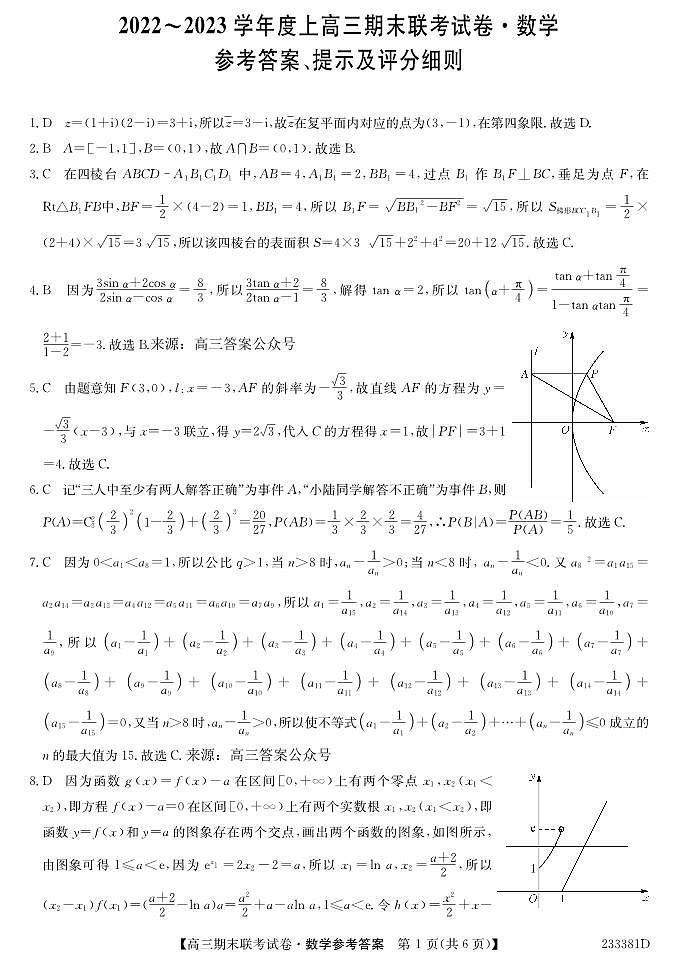 2022～2023学年度上高三期末联考试卷·数学
参考答案、提示及评分细则
1. D z=(1+i)(2-i)=3+i,所以z̅=3-i,故z̅在复平面内对应的点为(3,-1),在第四象限.故选D.
2. B A=[-1,1],B=(0,1),故A∩B=(0,1).故选B.
3. C 在四棱台 ABCD-A₁B₁C₁D₁ 中,AB=4,A₁B₁=2,BB₁=4,过点 B₁ 作 B₁F⊥BC,垂足为点 F,在
Rt△B₁FB中,BF=1/2×(4-2)=1,BB₁=4,所以 B₁F=√(BB₁²-BF²)=√15,所以 S梯形BCC₁B₁=1/2×
(2+4)×√15=3√15,所以该四棱台的表面积 S=4×3 √15+2²+4²=20+12√15.故选C.
4. B 因为(3sin α+2cos α)/(2sin α-cos α)=8/3,所以(3tan α+2)/(2tan α-1)=8/3,解得 tan α=2,所以 tan(α+π/4)=(tan α+tan π/4)/(1-tan αtan π/4)=
(2+1)/(1-2)=-3.故选B.来源：高三答案公众号
5. C 由题意知 F(3,0),l:x=-3,AF 的斜率为-√3/3,故直线 AF 的方程为 y=
-√3/3(x-3),与 x=-3 联立,得 y=2√3,代入 C 的方程得 x=1,故|PF|=3+1
=4.故选C.
y
l
A
P
O
F
x
6. C 记“三人中至少有两人解答正确”为事件 A,“小陆同学解答不正确”为事件 B,则
P(A)=C₃²(2/3)²(1-2/3)+(2/3)³=20/27,P(AB)=1/3×2/3×2/3=4/27,∴P(B|A)=P(AB)/P(A)=1/5.故选C.
7. C 因为 0<a₁<a₈=1,所以公比 q>1,当 n>8 时,aₙ-1/aₙ>0;当 n<8 时, aₙ-1/aₙ<0.又 a₈ ²=a₁a₁₅=
a₂a₁₄=a₃a₁₃=a₄a₁₂=a₅a₁₁=a₆a₁₀=a₇a₉,所以 a₁=1/a₁₅,a₂=1/a₁₄,a₃=1/a₁₃,a₄=1/a₁₂,a₅=1/a₁₁,a₆=1/a₁₀,a₇=
1/a₉,所以(a₁-1/a₁)+(a₂-1/a₂)+(a₃-1/a₃)+(a₄-1/a₄)+(a₅-1/a₅)+(a₆-1/a₆)+(a₇-1/a₇)+
(a₈-1/a₈)+(a₉-1/a₉)+(a₁₀-1/a₁₀)+(a₁₁-1/a₁₁)+(a₁₂-1/a₁₂)+(a₁₃-1/a₁₃)+(a₁₄-1/a₁₄)+
(a₁₅-1/a₁₅)=0,又当 n>8 时,aₙ-1/aₙ>0,所以使不等式(a₁-1/a₁)+(a₂-1/a₂)+⋯+(aₙ-1/aₙ)≤0 成立的
n 的最大值为 15.故选C.来源：高三答案公众号
8. D 因为函数 g(x)=f(x)-a 在区间[0,+∞)上有两个零点 x₁,x₂(x₁<
x₂),即方程 f(x)-a=0 在区间[0,+∞)上有两个实数根 x₁,x₂(x₁<x₂),即
函数 y=f(x)和 y=a 的图象存在两个交点,画出两个函数的图象,如图所示,
由图象可得 1≤a<e,因为 e^x₁=2x₂-2=a,所以 x₁=ln a,x₂=(a+2)/2,所以
(x₂-x₁)f(x₁)=((a+2)/2-ln a)a=a²/2+a-aln a,1≤a<e.令 h(x)=x²/2+x-
y
e
1
O
1
x
【高三期末联考试卷·数学参考答案 第1页(共6页)】
233381D